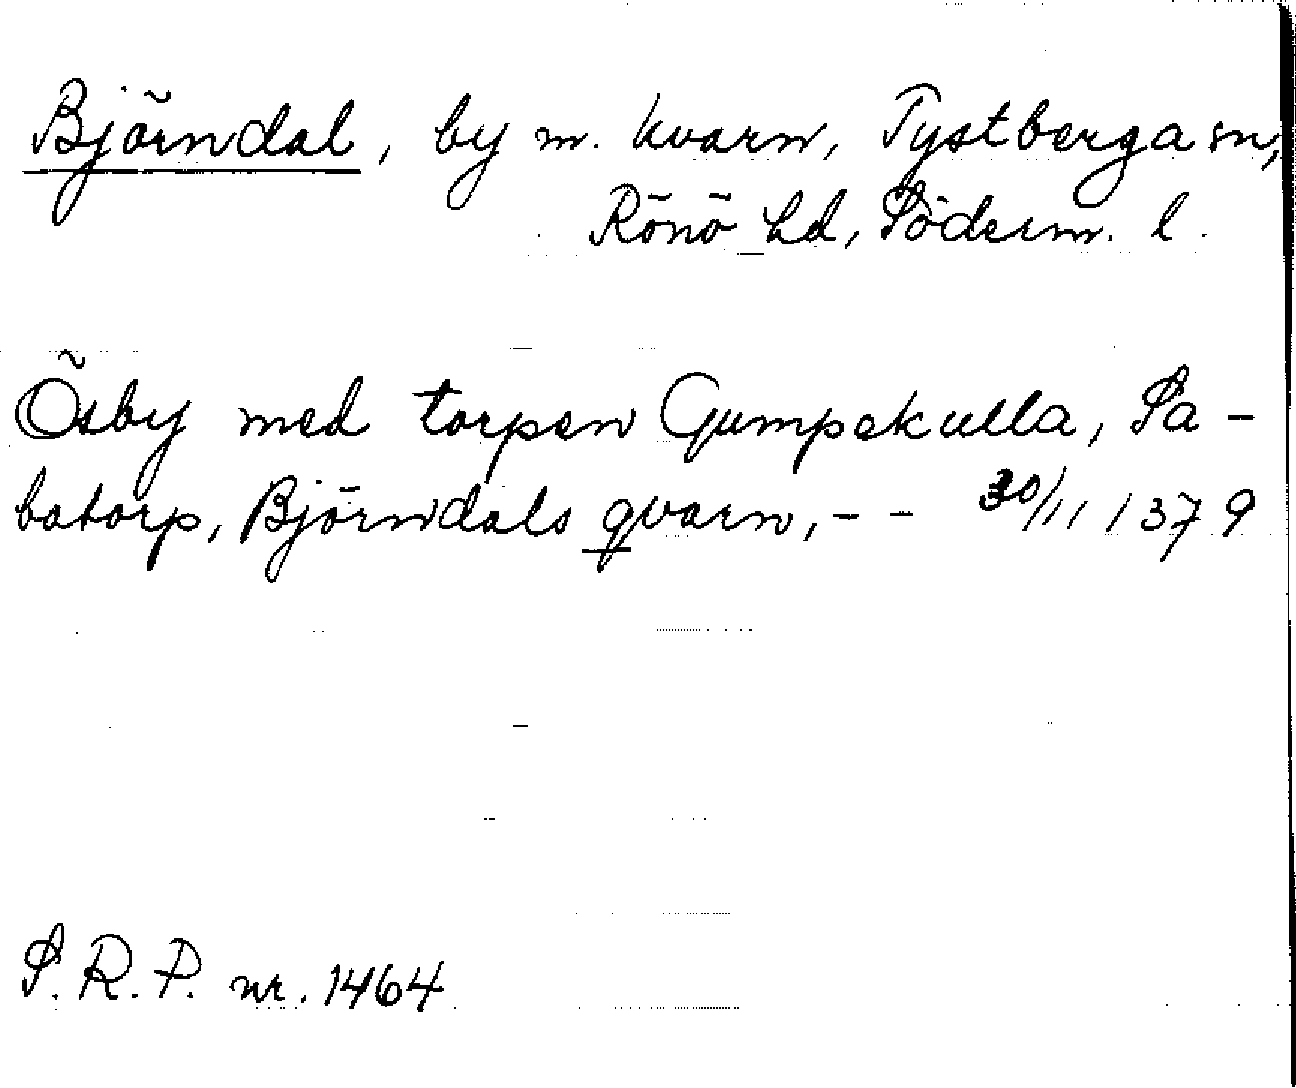 Björndal, by m. kvarn, Tystberga sn,
Rönö hd, Söderm. l.
Ösby med torpen Gumpekulla, Sa-
batorp, Björndals qvarn, - - 30/11 1379
S. R. P. nr. 1464